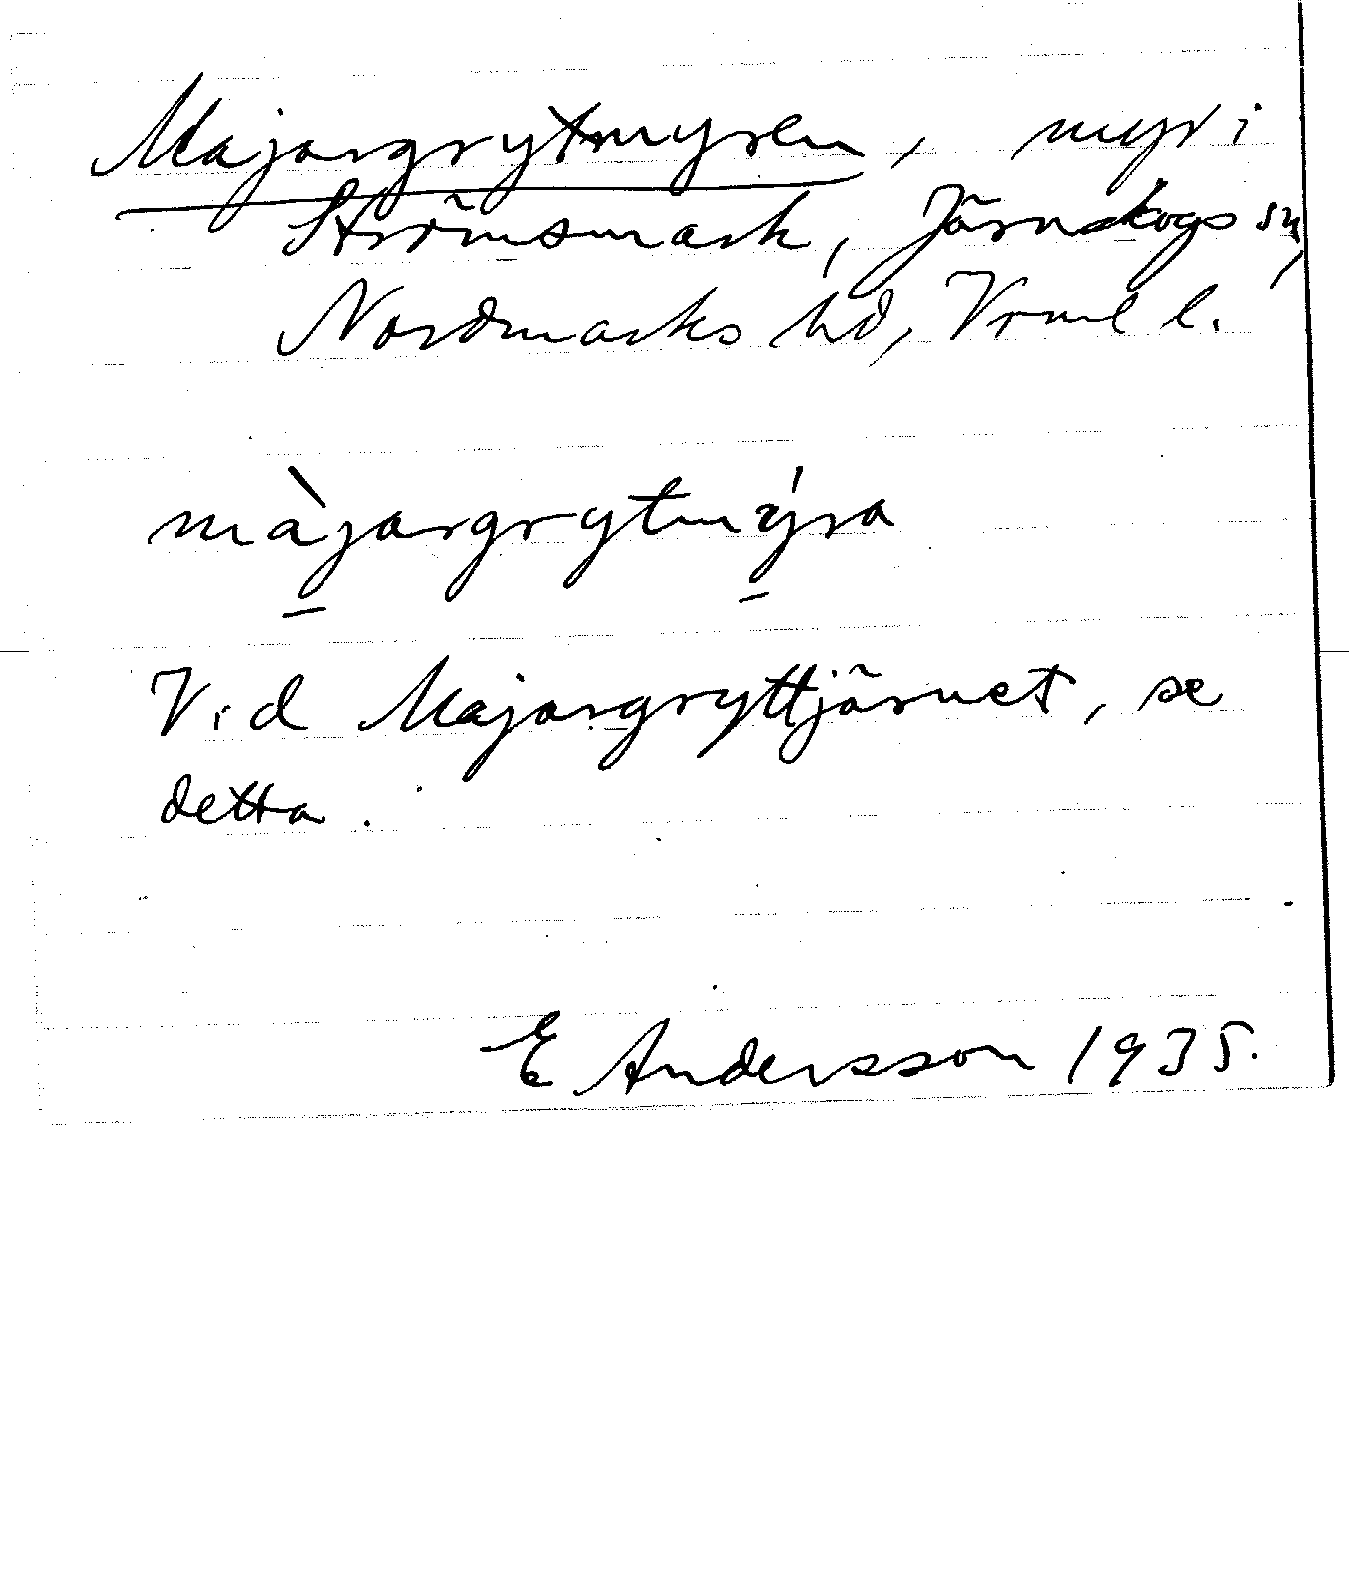 Majorgrytmyren, myr i
Strömsmark, Järnskogs sn,
Nordmarks hd, Vrml l.
màjorgrytmýra
Vid Majorgryttjärnet, se
detta.
E Andersson 1935.